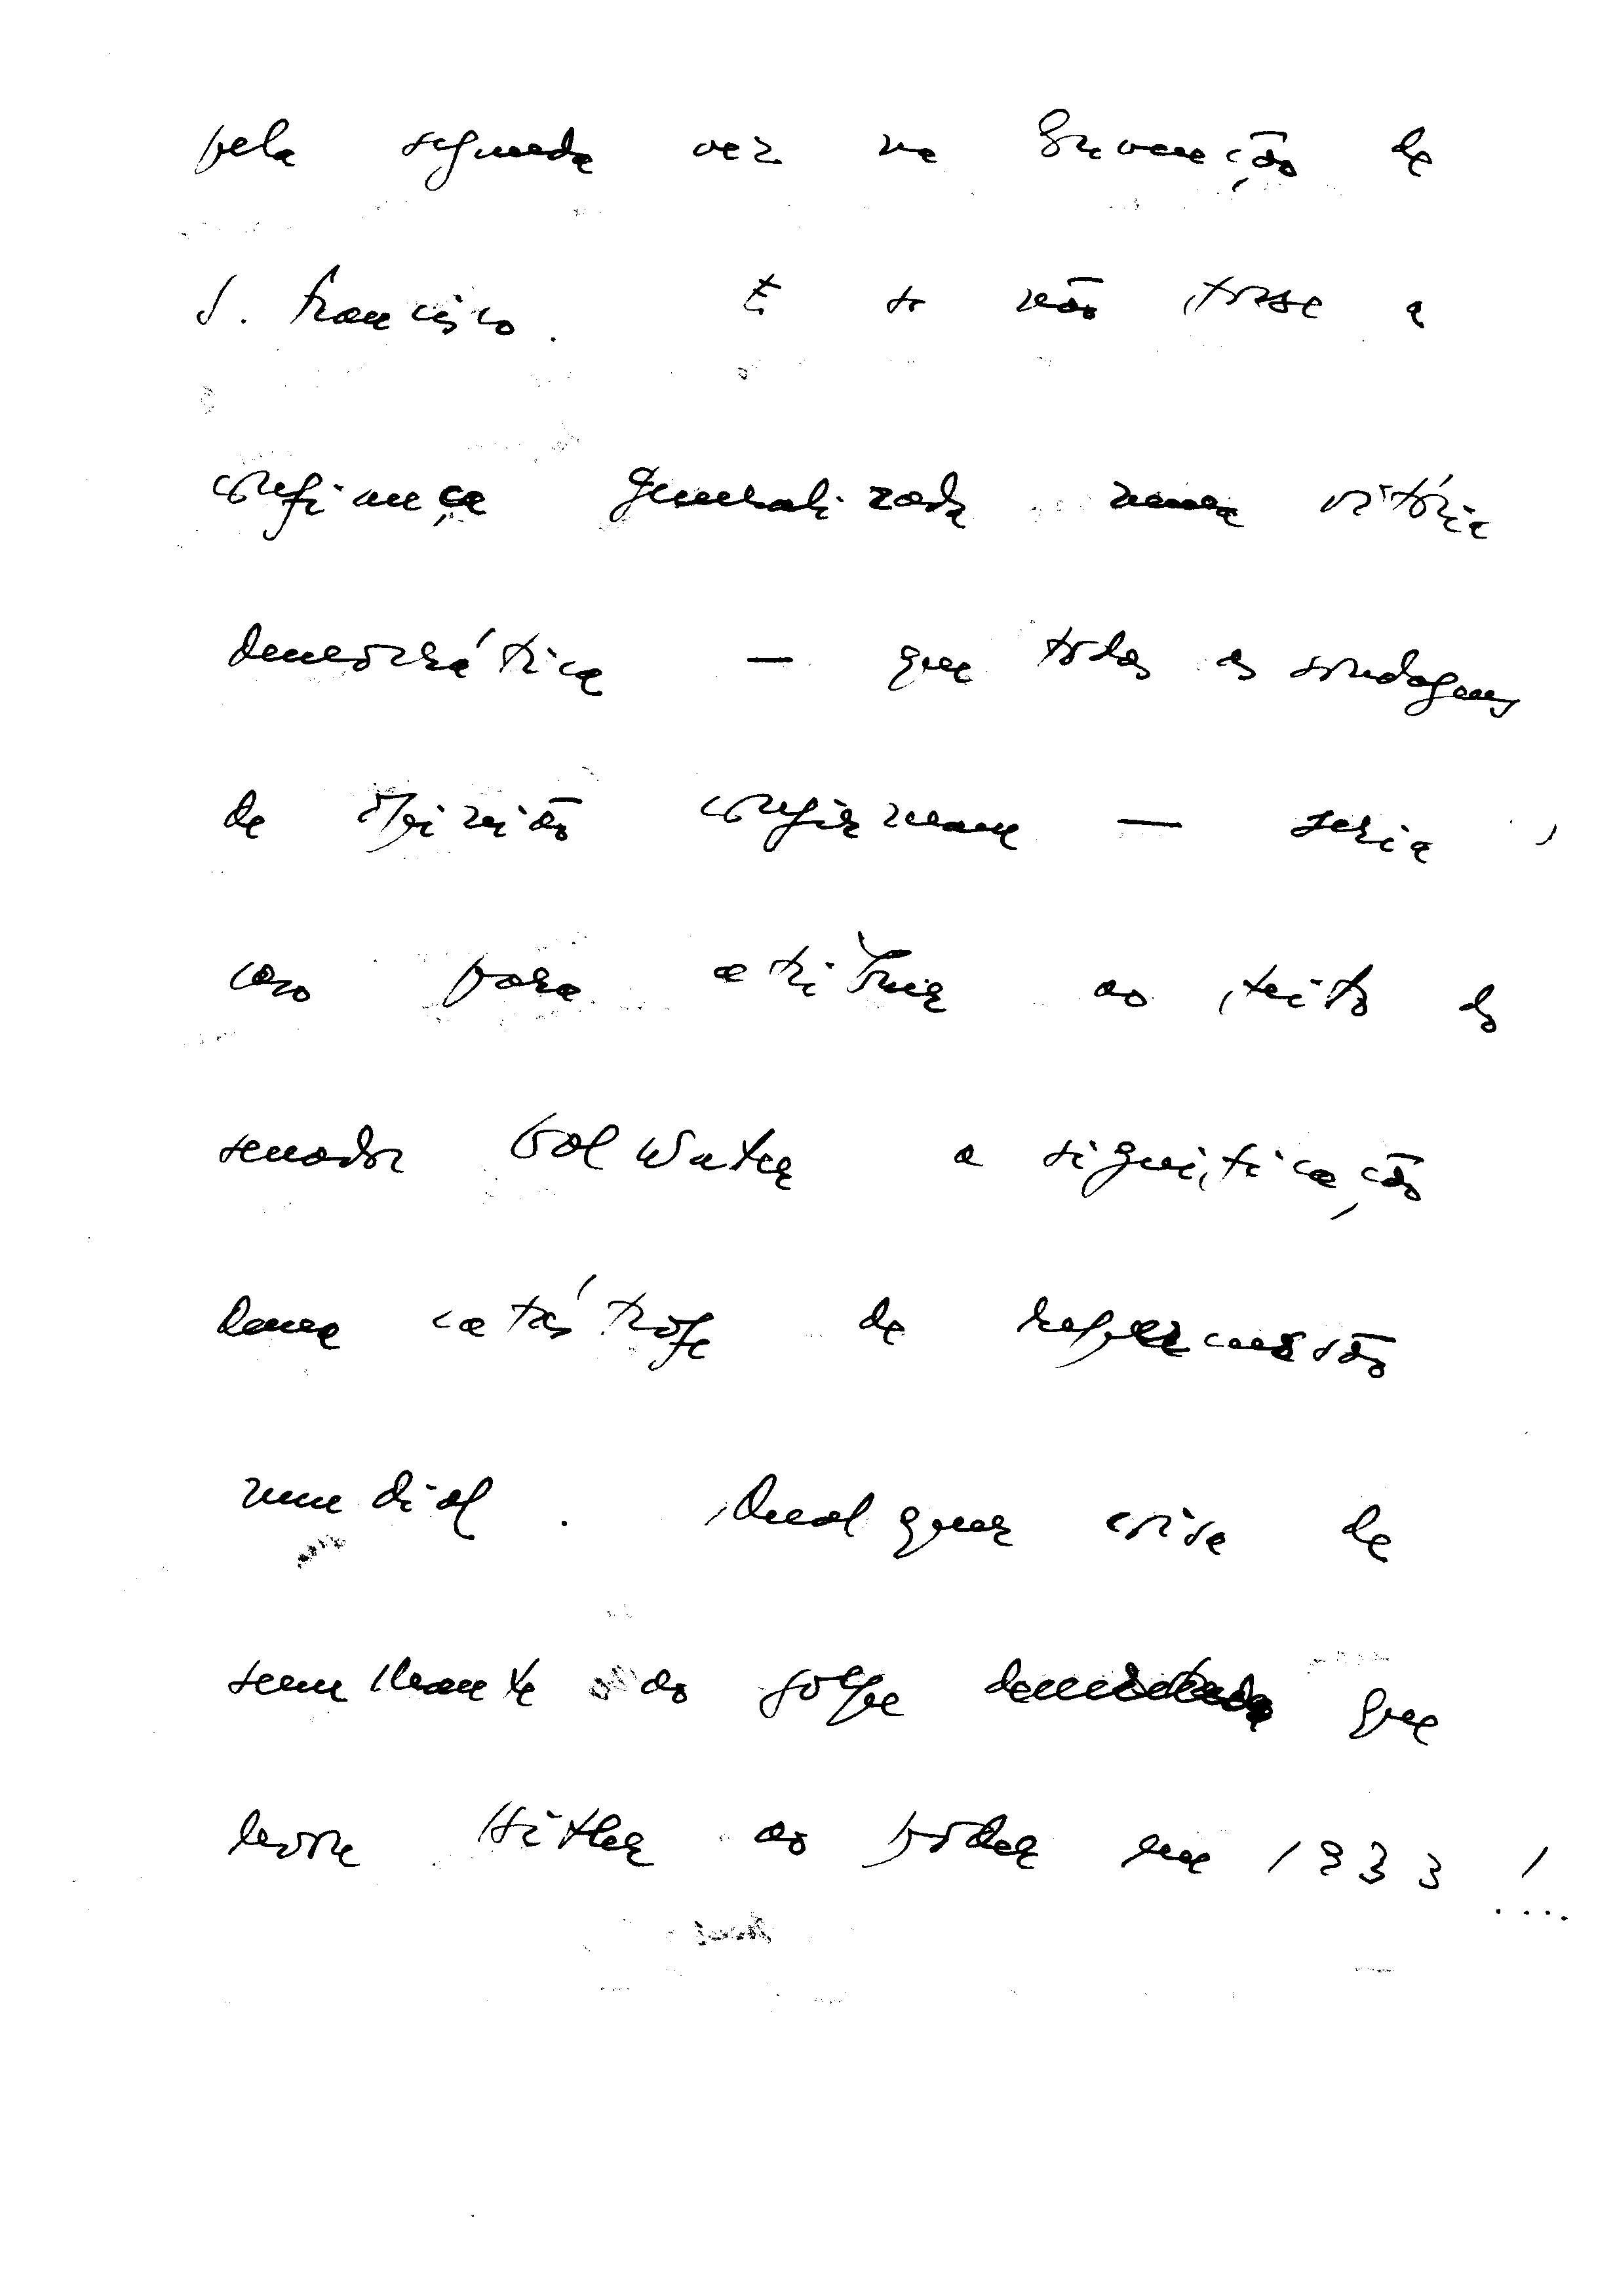 pela segunda vez na Convenção de
S. Francisco. E se não fosse a
confiança generalizada numa vitória
democrática — que todas as sondagens
de opinião confirmam — seria
caso para atribuir ao feito do
senador Golwater a significação
duma catástrofe de repercussão
mundial. Qualquer coisa de
semelhante ao golpe que
levou Hitler ao poder em 1933!...